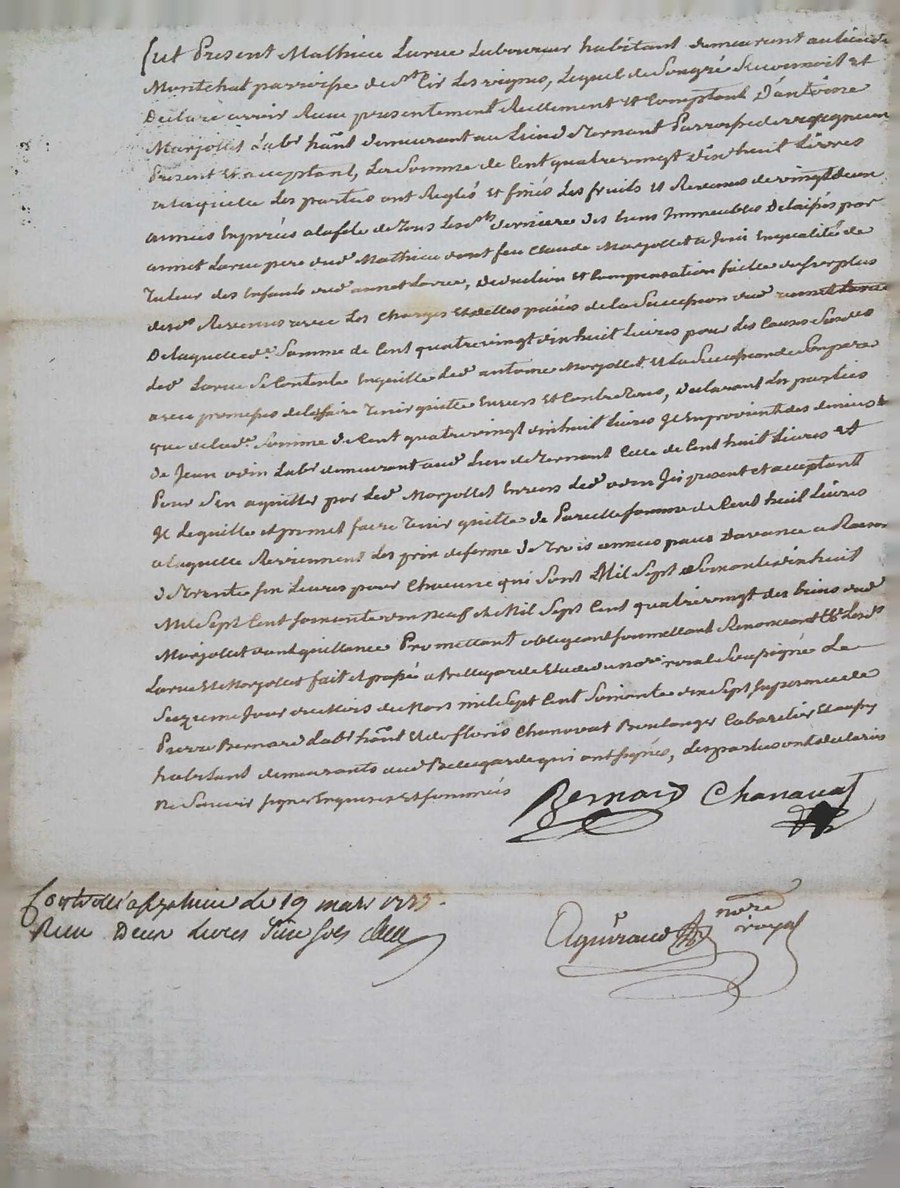 fut Present Mathieu Larue Laboureur habitant demeurant au lieu de
Montchal parroisse de St Cir Les vignes, Lequel de Son gré a reconnoit et
Declare avoir Reçu presentement Reellement et Comptant D'antoine
Marjollet Labr hant demeurant au Lieu de Ternant Parroisse de
Present et acceptant, La Somme de Cent quatre vingt dix huit Livres
a laquelle Les parties ont Reglés et fixés Les fruits et Revenus de vingt deux
années Expirés a la fete de Tous Les Sts derniere des biens Immeubles Delaissés par
annet Larue pere dud Mathieu dont feu Claude Marjollet a Joui En qualité de
Tuteur des Enfants dud annet Larue, deduction et Compensation faite du Surplus
desds Revenus avec Les Charges et dettes payées de la Succession dud annet Larue
De laquelle de Somme de Cent quatre vingt dix huit Livres pour Les Causes Susdes
led Larue Se Contente En quitte led antoine Marjollet et La Succession de Son pere
avec promesse de Les faire Tenir quitte Envers et Contre Tous, declarant Les parties
que de lade Somme de Cent quatre vingt dix huit Livres Il En provient des deniers
de Jean odin Labr demeurant aud Lieu de Ternant Celle de Cent huit Livres et
Pour S'en aquitter par Led Marjollet Envers Led odin Ici present et acceptant
Il Le quitte et promet faire Tenir quitte de Pareille Somme de Cent huit Livres
a laquelle Reviennent Les prix de ferme de Trois années payés D'avance a Raison
de Trente Six Livres pour Chacune qui Sont Mil Sept Soixante dix huit
Mil Sept Cent Soixante dix neuf et Mil Sept Cent quatre vingt des biens dud
Marjollet dont quittance Promettant obligeant Soumettant Renonceant &c Lesds
Larue et Marjollet fait et passé a Bellegarde Etude du nore royal Soussigné Le
Seizieme Jour du Mois de Mars mil Sept Cent Soixante dix Sept En presence de
Pierre Bernard Labr hant et de floris Chanavat Boulanger Cabaretier Et aussy
habitant demeurants aud Bellegarde qui ont signés, Les parties ont declarés
Ne Savoir signer Enquises Et Sommées
Bernard Chanavat
Contrôlé a le 19 mars 1777.
Reçu Deux Livres Sols
Aguiraud nore royal